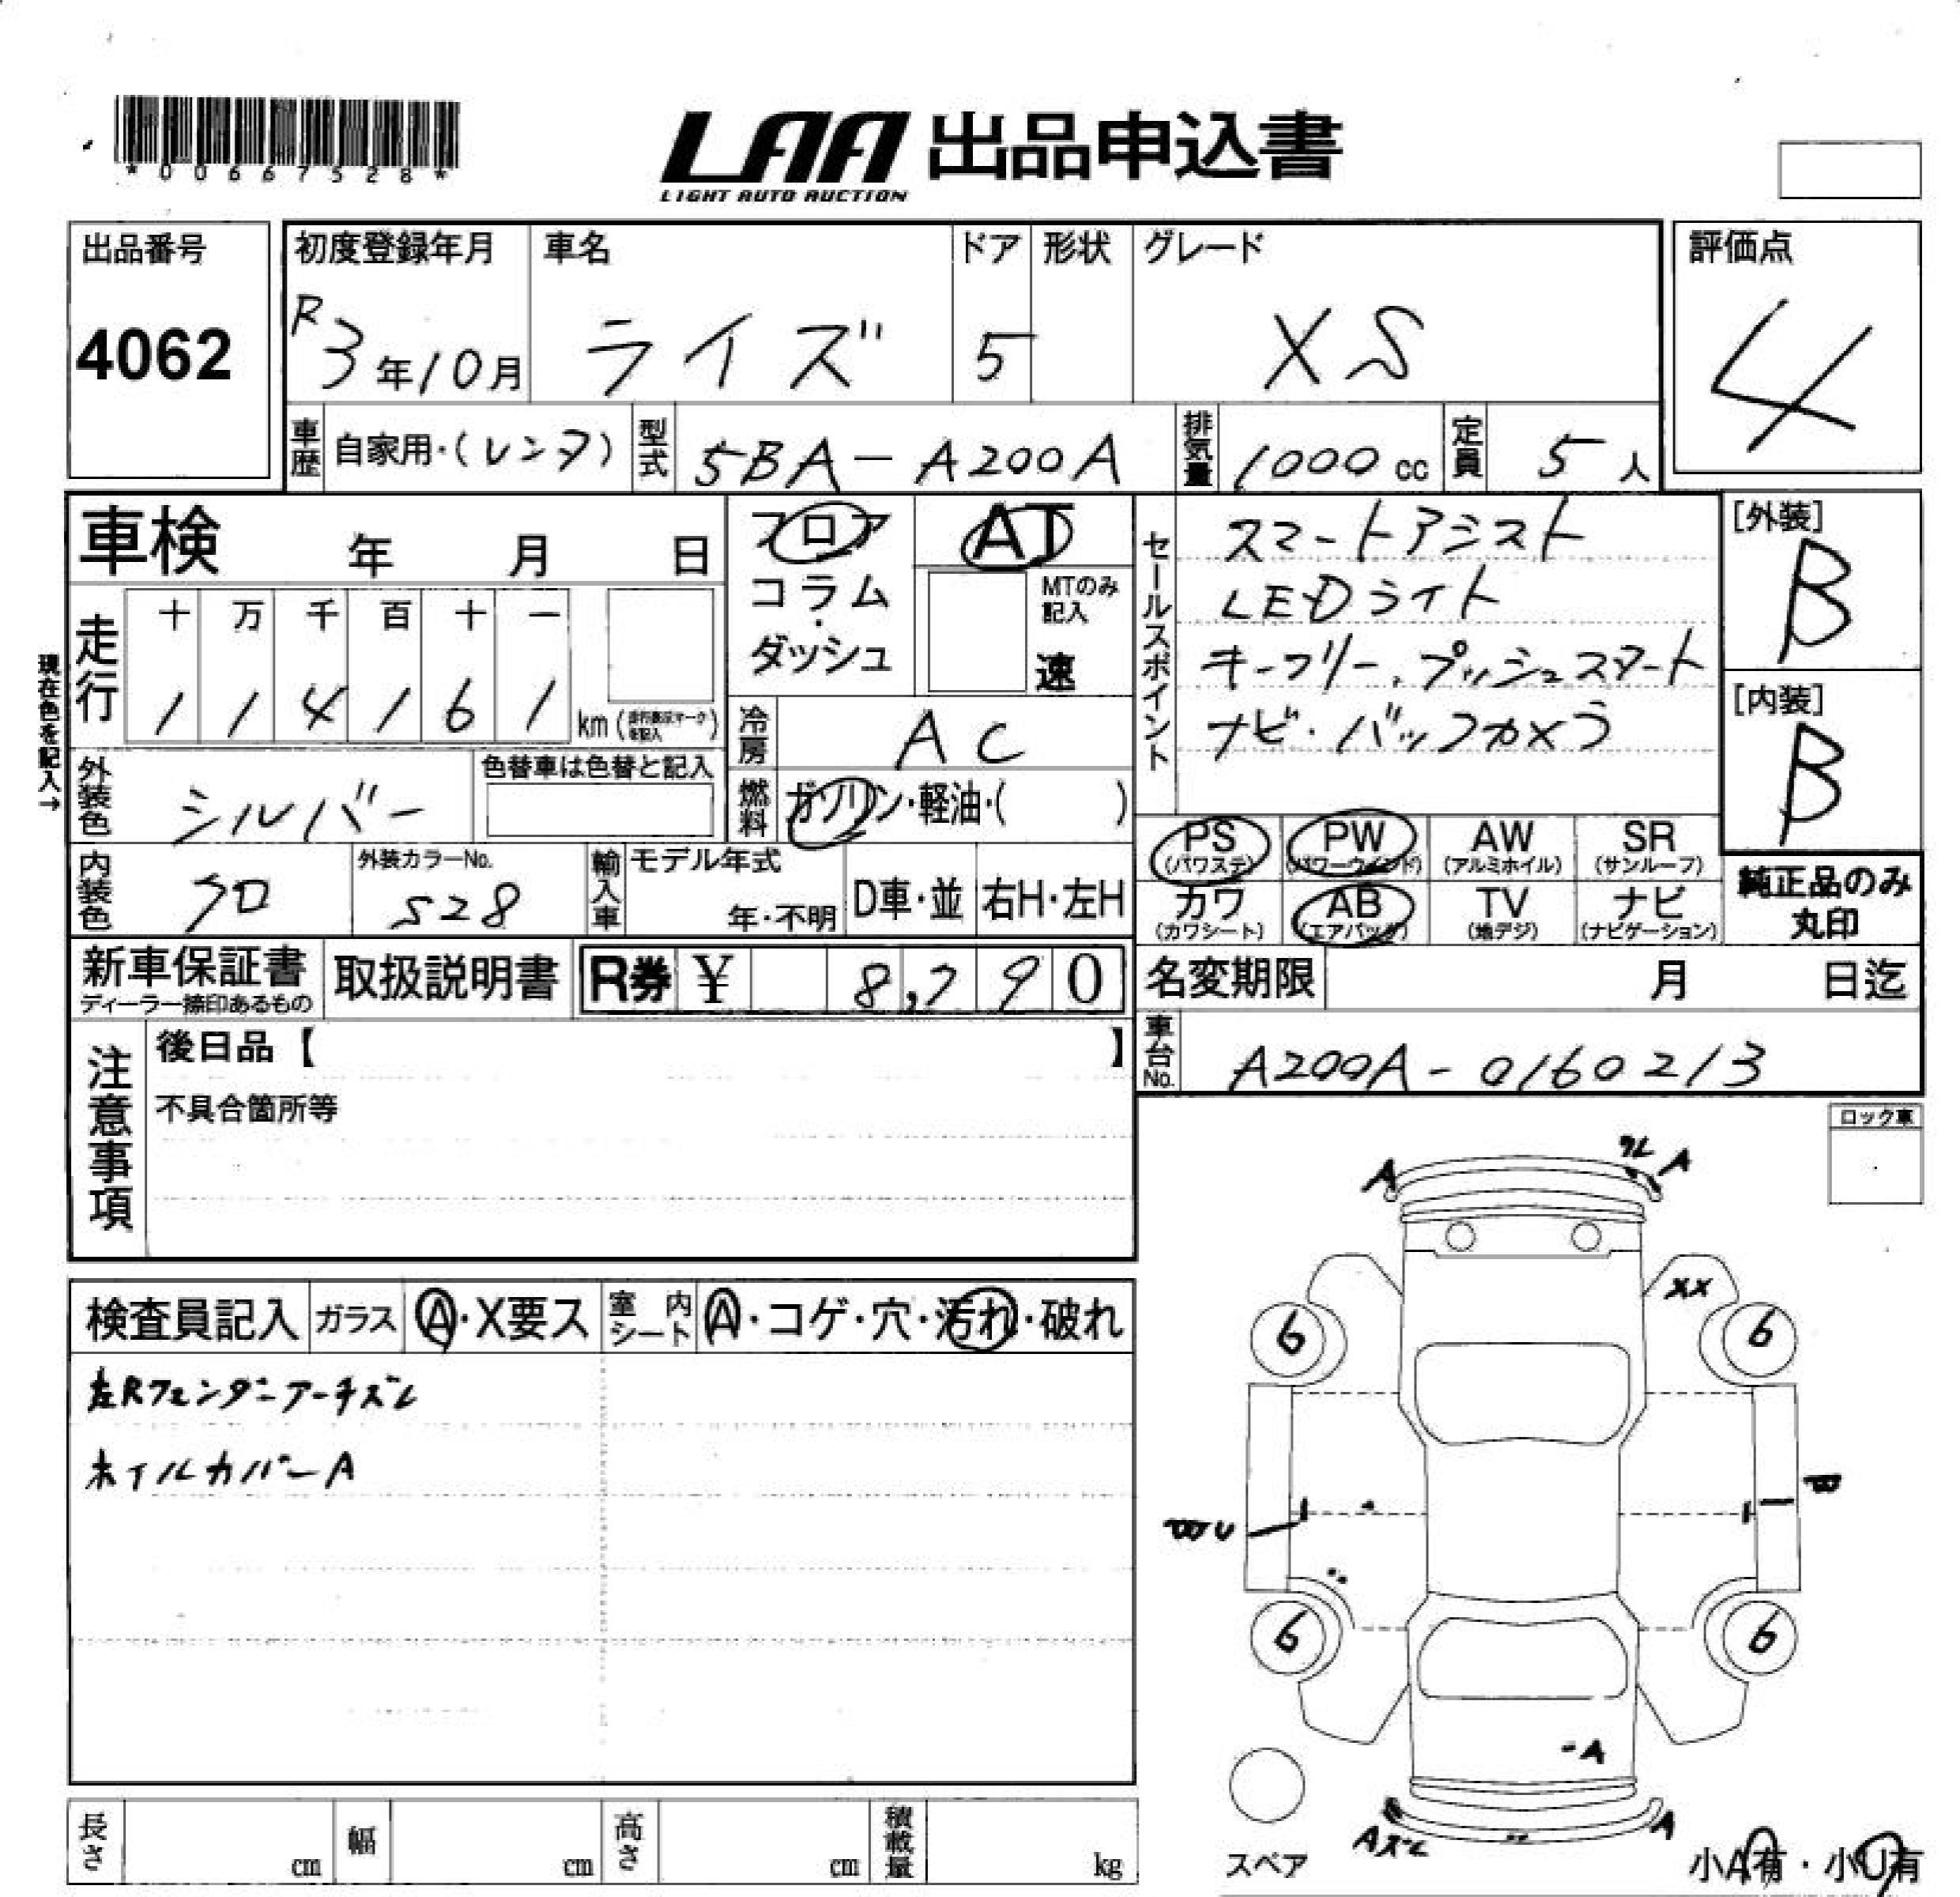 *00667528*
LAA 出品申込書
LIGHT AUTO AUCTION
出品番号
4062
初度登録年月
R3年10月
車名
ライズ
ドア
5
形状
グレード
XS
評価点
4
車歴
自家用・(レンタ)
型式
5BA-A200A
排気量
1000cc
定員
5人
車検 年 月 日
現在色を記入→
走行
十 万 千 百 十 一
1 1 4 1 6 1 km
フロア
コラム
・
ダッシュ
AT
MTのみ記入
速
冷房
AC
燃料
ガソリン・軽油・( )
セールスポイント
スマートアシスト
LEDライト
キーフリー、プッシュスタート
ナビ・バックカメラ
[外装]
B
[内装]
B
外装色
シルバー
色替車は色替と記入
内装色
クロ
外装カラーNo.
S28
輸入車
モデル年式
年・不明
D車・並
右H・左H
PS (パワステ)
PW (パワーウインド)
AW (アルミホイル)
SR (サンルーフ)
カワ (カワシート)
AB (エアバッグ)
TV (地デジ)
ナビ (ナビゲーション)
純正品のみ
丸印
新車保証書
ディーラー捺印あるもの
取扱説明書
R券 ¥ 8,790
名変期限 月 日迄
車台No.
A200A-0160213
注意事項
後日品【 】
不具合箇所等
ロック車
検査員記入
ガラス
A・X要ス
室内シート
A・コゲ・穴・汚れ・破れ
左Rフェンダーアーチズレ
ホイルカバーA
A
A
XX
6
6
B
U
6
6
A
Aズレ
A
スペア
小A有・小U有
長さ cm
幅 cm
高さ cm
積載量 kg